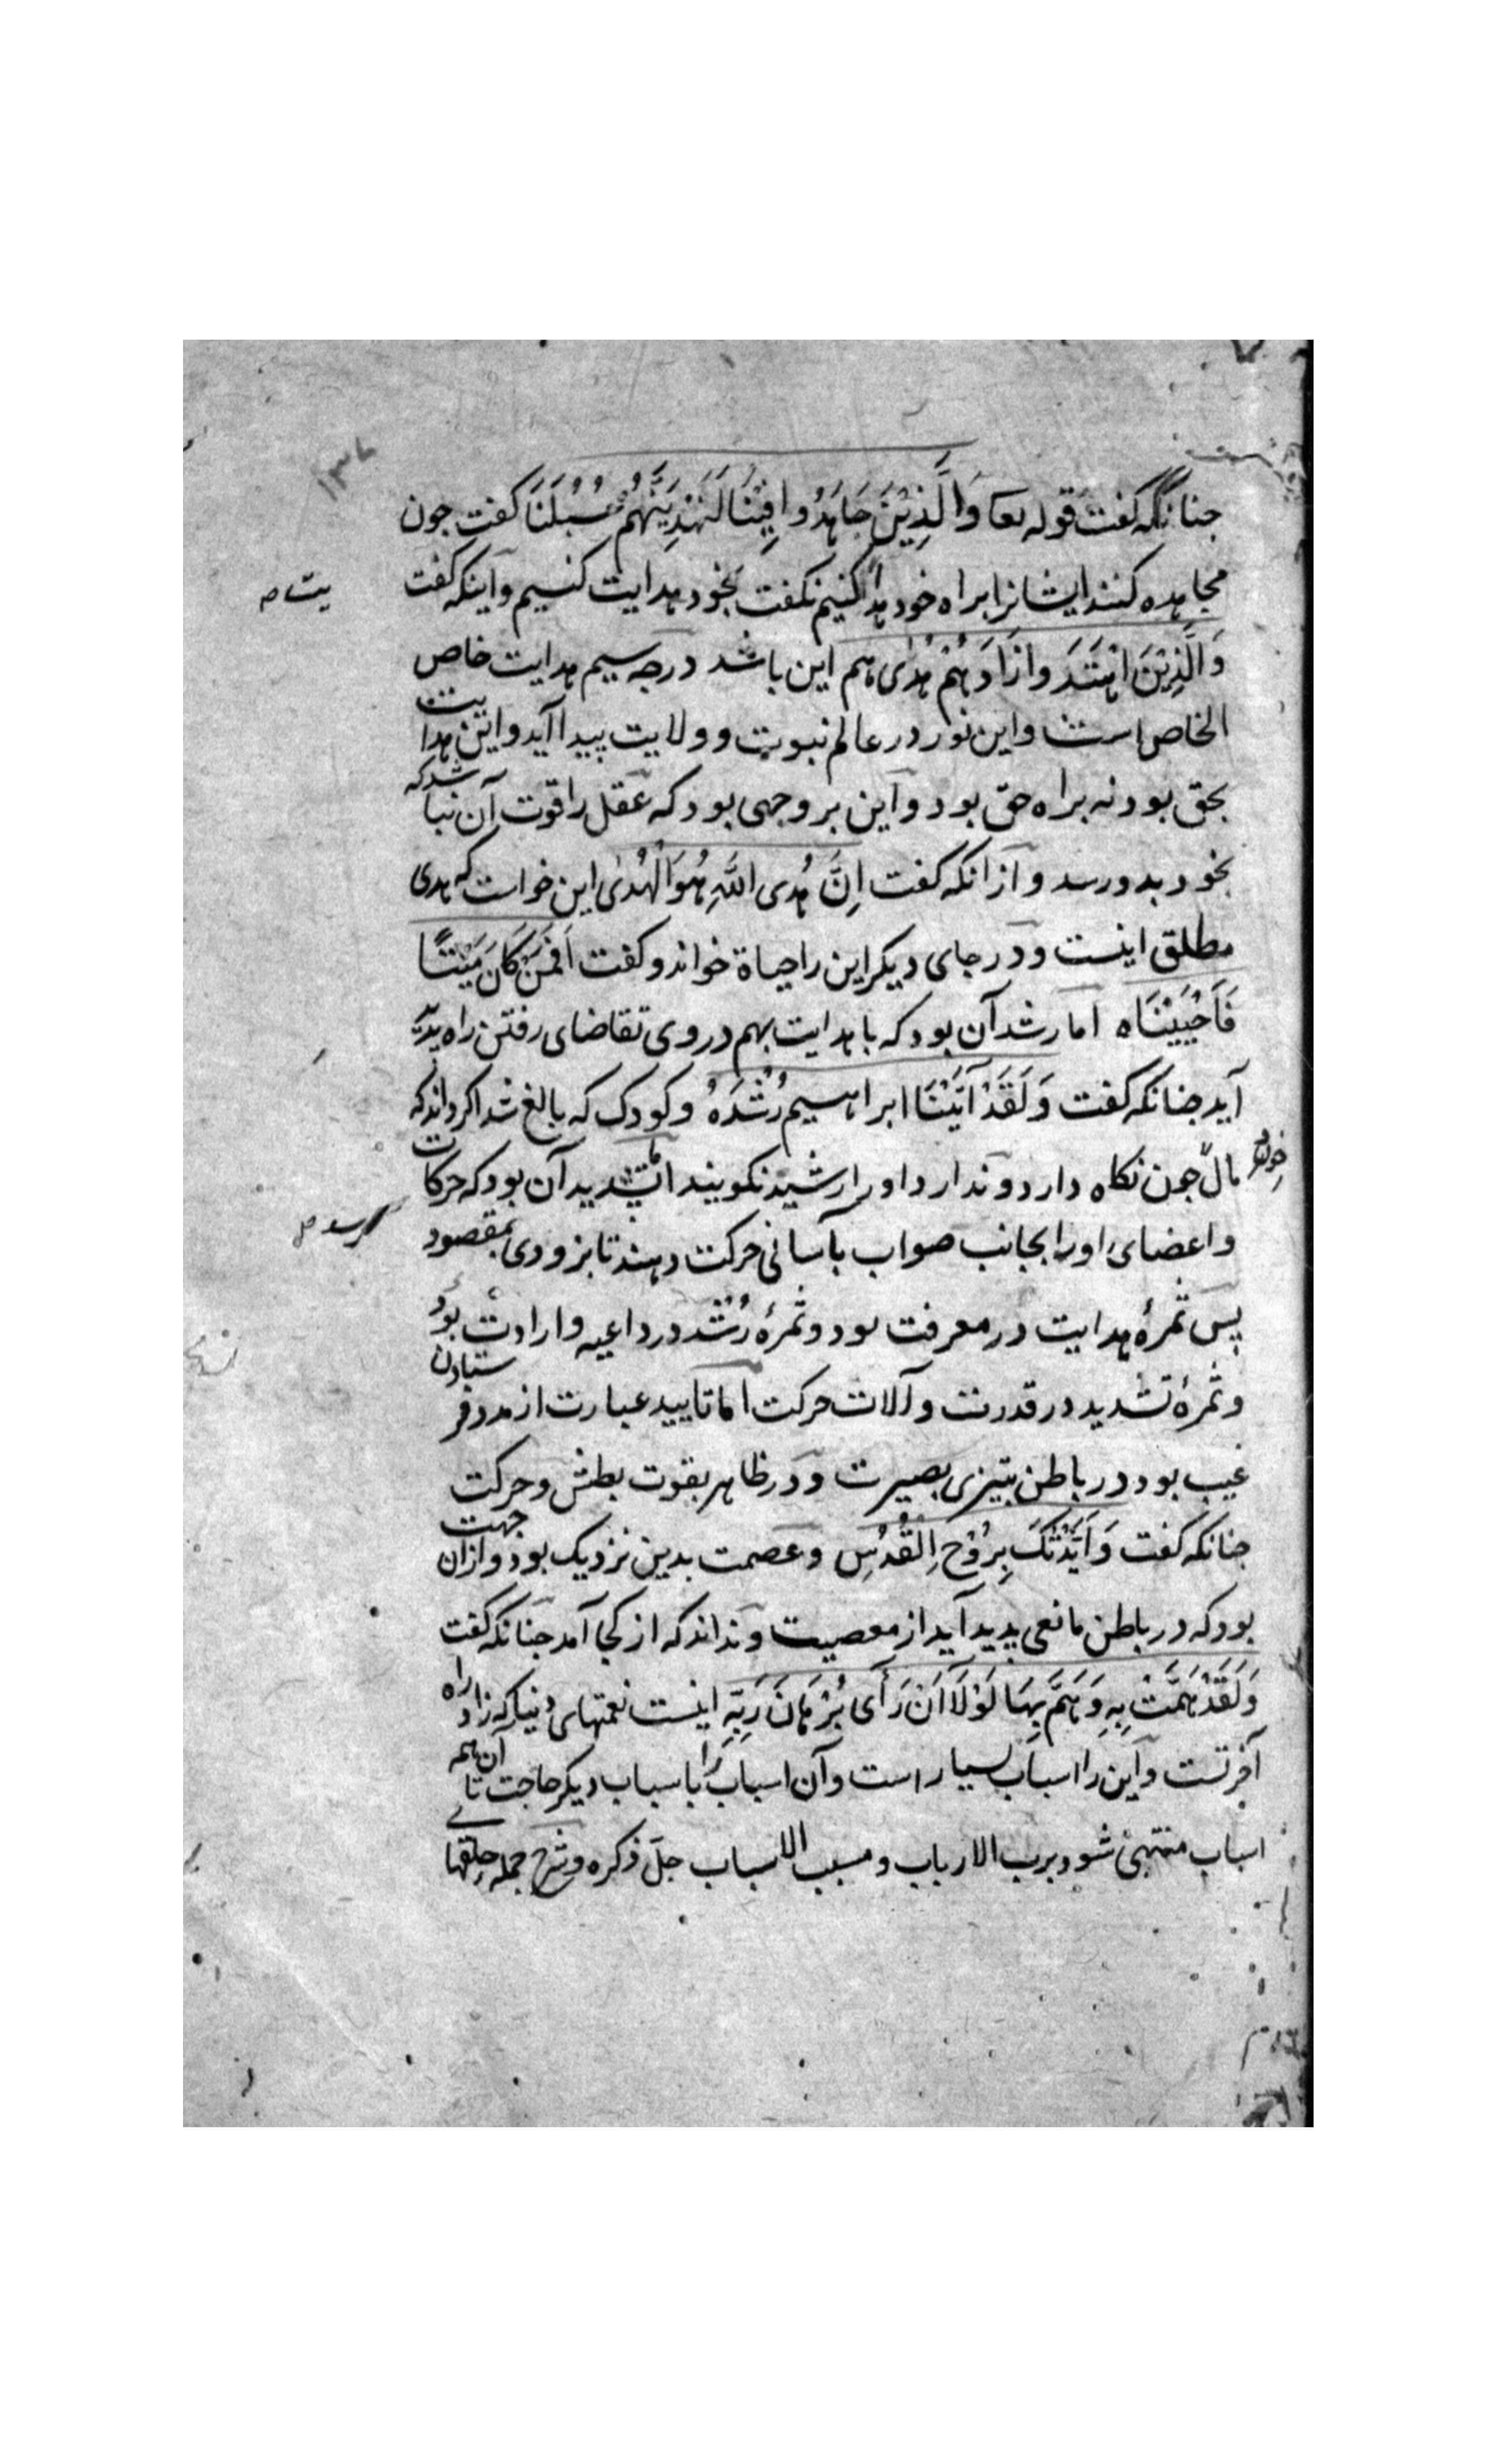 جنانکه کفت قوله تعا وَالَّذِیْنَ جَاهَدُوا فِیْنَا لَنَهْدِیَنَّهُمْ سُبُلَنَا کفت جون
مجاهده کنند ایشانرا براه خود هدا کنیم نکفت بخود هدایت کنیم و اینکه کفت
یت
وَالَّذِیْنَ اهْتَدَوا زَادَهُمْ هُدًی هم این باشد درجه سیم هدایت خاص
الخاص است و این نور در عالم نبوت و ولایت پیدا آید و این هدایت
بحق بود نه براه حق بود و این بر وجهی بود که عقل را قوت آن نباشد که
بخود بدو رسد و آزانکه کفت اِنَّ هُدی اللّٰهِ هُوَ الْهُدٰی این خواست که هدی
مطلق اینست و در جای دیکر این را حیاة خواند و کفت اَفَمَنْ کَانَ مَیْتًا
فَاَحْیَیْنَاه اما رشد آن بود که با هدایت بهم در وی تقاضای رفتن راه پدید
آید جنانکه کفت وَلَقَدْ آتَیْنَا ابراهیم رُشْدَهُ و کودک که بالغ شد اکر داند که
مال جون نکاه دارد و ندارد او را رشید نکویند اما تشدید آن بود که حرکات
خود
و اعضای او را بجانب صواب بآسانی حرکت دهند تا بزودی بمقصود
رسد
پس ثمرۀ هدایت در معرفت بود و ثمرۀ رُشد در داعیه و ارادت بود
و ثمرۀ تشدید در قدرت و آلات حرکت اما تایید عبارت از مدد فرستادن
غیب بود در باطن بتیزی بصیرت و در ظاهر بقوت بطش و حرکت
جنانکه کفت وَاَیَّدْتُکَ بِرُوْحِ الْقُدُسِ و عصمت بدین نزدیک بود و ازان جهت
بود که در باطن مانعی پدید آید از معصیت و نداند که از کجا آمد جنانکه کفت
وَلَقَدْ هَمَّتْ بِهِ وَهَمَّ بِهَا لَوْلَا اَنْ رَأَی بُرْهَانَ رَبِّهِ اینست نعمتهای دنیا که زاد راه
آخرتست و این را اسباب بسیار است و آن اسباب را باسباب دیکر حاجت تا آن همه
اسباب منتهی شود برب الارباب و مسبب الاسباب جلّ ذکره و شرح جمله حلقهای